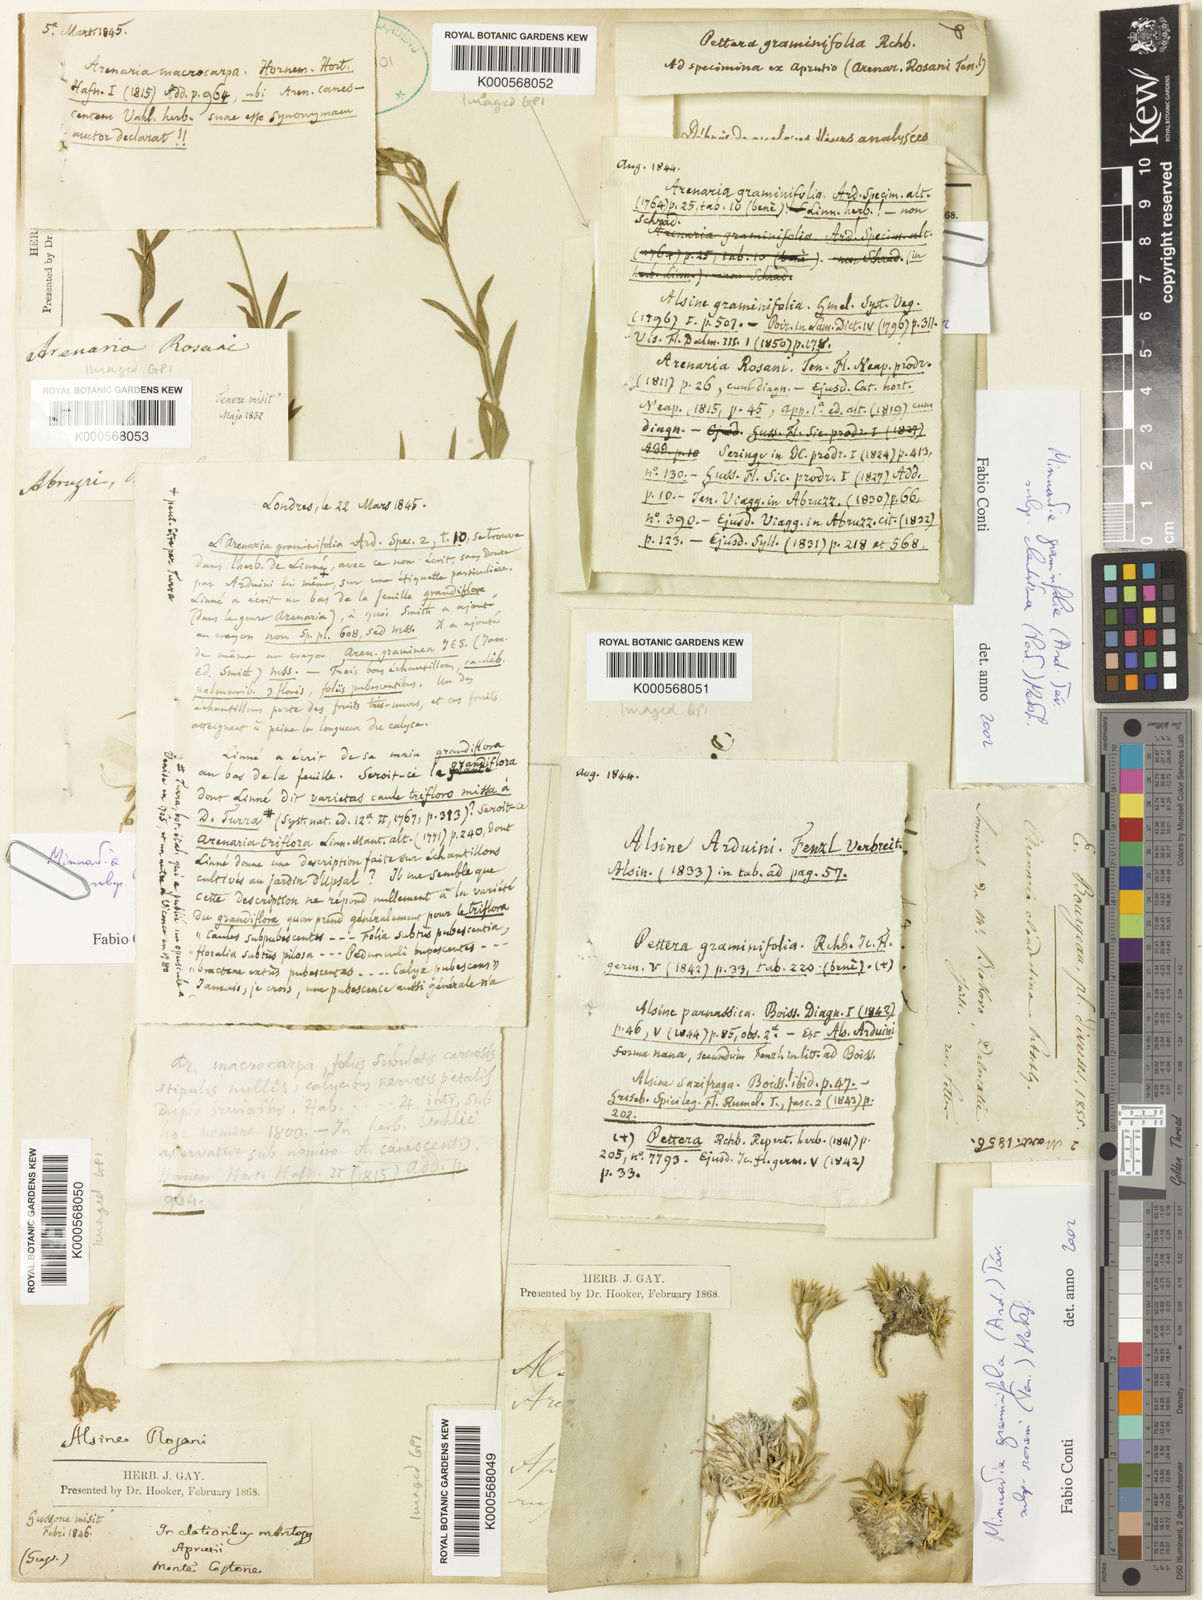 5ª Mars 1845.
Arenaria macrocarpa. Hornem. Hort.
Hafn. I (1815) Add. p. 964, ubi Aren. canes-
centem Vahl. herb. suae esse synonymam
auctor declarat !!
ROYAL BOTANIC GARDENS KEW
K000568052
Imaged GPI
Pettera graminifolia Rchb.
Ad specimina ex Aprutio (Arenar. Rosani Ten.!)
Débris de quelques fleurs analysées
Aug. 1844.
Arenaria graminifolia. Ard. Specim. alt.
(1764) p. 25, tab. 10 (benè)! Linn. herb.! — non
Schrad.
Arenaria graminifolia Ard. Specim. alt.
(1764) p. 25, tab. 10 (benè). non Schrad. (in
herb. Linn.) non Schrad.
Alsine graminifolia. Gmel. Syst. Veg.
(1796) I. p. 507. — Poir. in Lam. Dict. IV (1796) p. 311.
Vis. Fl. Dalm. III. 1 (1850) p. 178.
Arenaria Rosani. Ten. Fl. Neap. prodr.
(1811) p. 26, cum diagn. — Ejusd. Cat. hort.
Neap. 1815, p. 45, app. 1ª ed. alt. (1819) cum
diagn. — Ejusd. Guss. Fl. Sic. prodr. I (1827)
Add. p. 10 Seringe in DC. prodr. I (1824) p. 413,
nº. 130. — Guss. Fl. Sic. prodr. I (1827) Add.
p. 10. — Ten. Viagg. in Abruzz. (1830) p. 66.
nº 390. — Ejusd. Viagg. in Abruzz. cit. (1832)
p. 123. — Ejusd. Syll. (1831) p. 218 et 568.
HERB
Presented by Dr.
Arenaria Rosani
Imaged GPI
ROYAL BOTANIC GARDENS KEW
K000568053
Tenore misit
Majo 1832
Abruzzi,
Londres, le 22 Mars 1845.
L'Arenaria graminifolia Ard. Spec. 2, t. 10, se trouve
dans l'herb. de Linné, avec ce nom écrit, sans doute
par Arduini lui même, sur une étiquette particulière.
Linné a écrit au bas de la feuille grandiflora
(dans le genre Arenaria), à quoi Smith a ajouté
au crayon non Sp. pl. 608, sed mss. Il a ajouté
de même au crayon Aren. graminea JES. (Jam.
Ed. Smith) mss. — Trois bons échantillons, caulib.
palmarib. 3 floris, foliis pubescentibus. Un des
échantillons porte des fruits très-murs, et ces fruits
atteignent à peine la longueur du calyce.
Linné a écrit de sa main grandiflora
au bas de la feuille. Seroit-ce la grandiflora
dont Linné dit varietas caule trifloro missa à
D. Turra # (Syst. nat. ed. 12ª II, 1767, p. 313)? Seroit-ce
Arenaria triflora Linn. Mant. alt. (1771) p. 240, dont
Linné donne une description faite sur échantillons
cultivés au jardin d'Upsal ? Il me semble que
cette description ne répond nullement à la variété
du grandiflora qu'on prend généralement pour le triflora
" Caules subpubescentes --- Folia subtus pubescentia,
" floralia subtus pilosa --- Pedunculi pubescentes ---
" bracteae extus pubescentes ---- Calyx pubescens"
Jamais, je crois, une pubescence aussi générale n'a
+ peut-être par Turra
# Turra, bot. ital. qui a publié un opuscule à
Venise en 1765, et un autre à Vicence en 1780
ROYAL BOTANIC GARDENS KEW
K000568051
Imaged GPI
Aug. 1844.
Alsine Arduini. Fenzl Verbreit.
Alsin. (1833) in tab. ad pag. 57.
Pettera graminifolia. Rchb. Ic. Fl.
germ. V (1842) p. 33, tab. 220 (benè). (+)
Alsine parnassica. Boiss. Diagn. I (1843)
p. 46, V (1844) p. 85, obs. 2ª — Est Als. Arduini
forma nana, secundùm Fenzl in litt. ad Boiss.
Alsine Saxifraga. Boiss! ibid. p. 47. —
Griseb. Spicileg. Fl. Rumel. I, fasc. 2 (1843) p.
202.
(+) Pettera Rchb. Repert. herb. (1841) p.
205, nº. 7793. Ejusd. Ic. fl. germ. V (1842)
p. 33.
Ar. macrocarpa, foliis subulatis carnosis
stipulis nullis, calycibus nervosis petalis
duplo brevioribus. Hab. ---- 4. intr. sub
hoc nomine 1800. — In herb. Vahlii
asservatur sub nomine A. canescentis
Hornem. Hort. Hafn. II (1815) Add. p.
964.
Minuartia graminifolia (Ard.) Jáv.
subsp. clandestina (Port.) Mattf.
Fabio Conti
det. anno 2002
E. Bourgeau, pl. divers. 1855.
2 Mart. 1856.
Arenaria clandestina Portschlg.
Sommet du Mt. Biokovo, Dalmatie
Minuartia
subsp.
Fabio Co
ROYAL BOTANIC GARDENS KEW
K000568050
Imaged GPI
Alsine Rosani
HERB. J. GAY.
Presented by Dr. Hooker, February 1868.
Gussone misit
Febr. 1846.
In elatioribus montosis
Aprutii
Monte
HERB. J. GAY.
Presented by Dr. Hooker, February 1868.
ROYAL BOTANIC GARDENS KEW
K000568049
Imaged GPI
Minuartia graminifolia (Ard.) Jáv.
subsp. rosani (Ten.) Mattf.
Fabio Conti
det. anno 2002
Kew
ROYAL BOTANIC GARDENS
copyright reserved